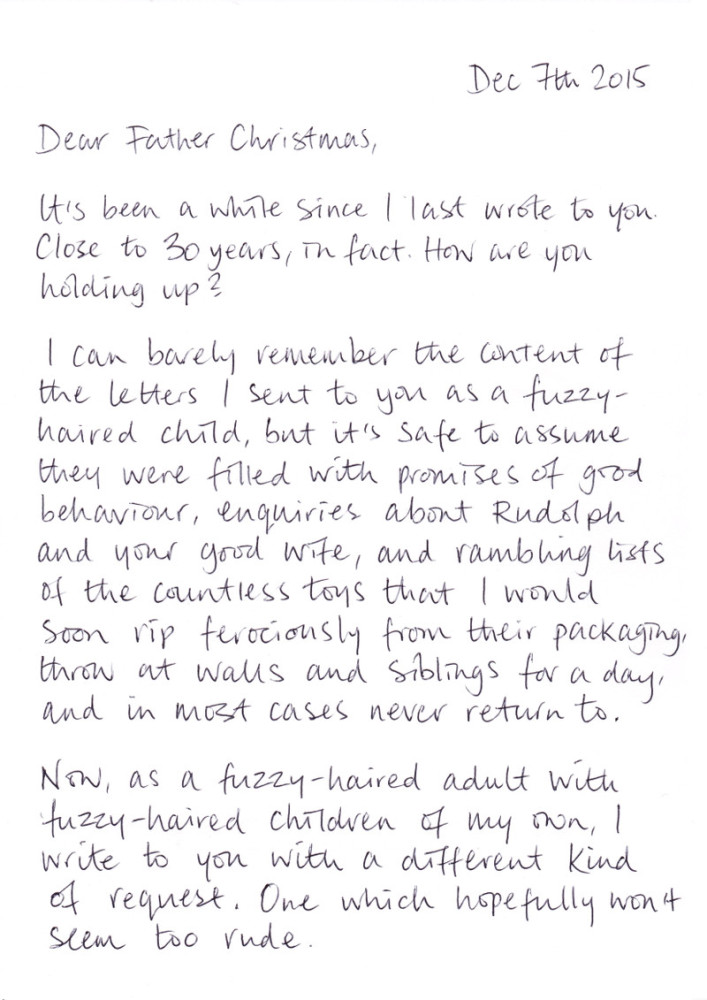 Dec 7th 2015
Dear Father Christmas,
It's been a while since I last wrote to you.
Close to 30 years, in fact. How are you
holding up?
I can barely remember the content of
the letters I sent to you as a fuzzy-
haired child, but it's safe to assume
they were filled with promises of good
behaviour, enquiries about Rudolph
and your good wife, and rambling lists
of the countless toys that I would
soon rip ferociously from their packaging,
throw at walls and siblings for a day,
and in most cases never return to.
Now, as a fuzzy-haired adult with
fuzzy-haired children of my own, I
write to you with a different kind
of request. One which hopefully won't
seem too rude.